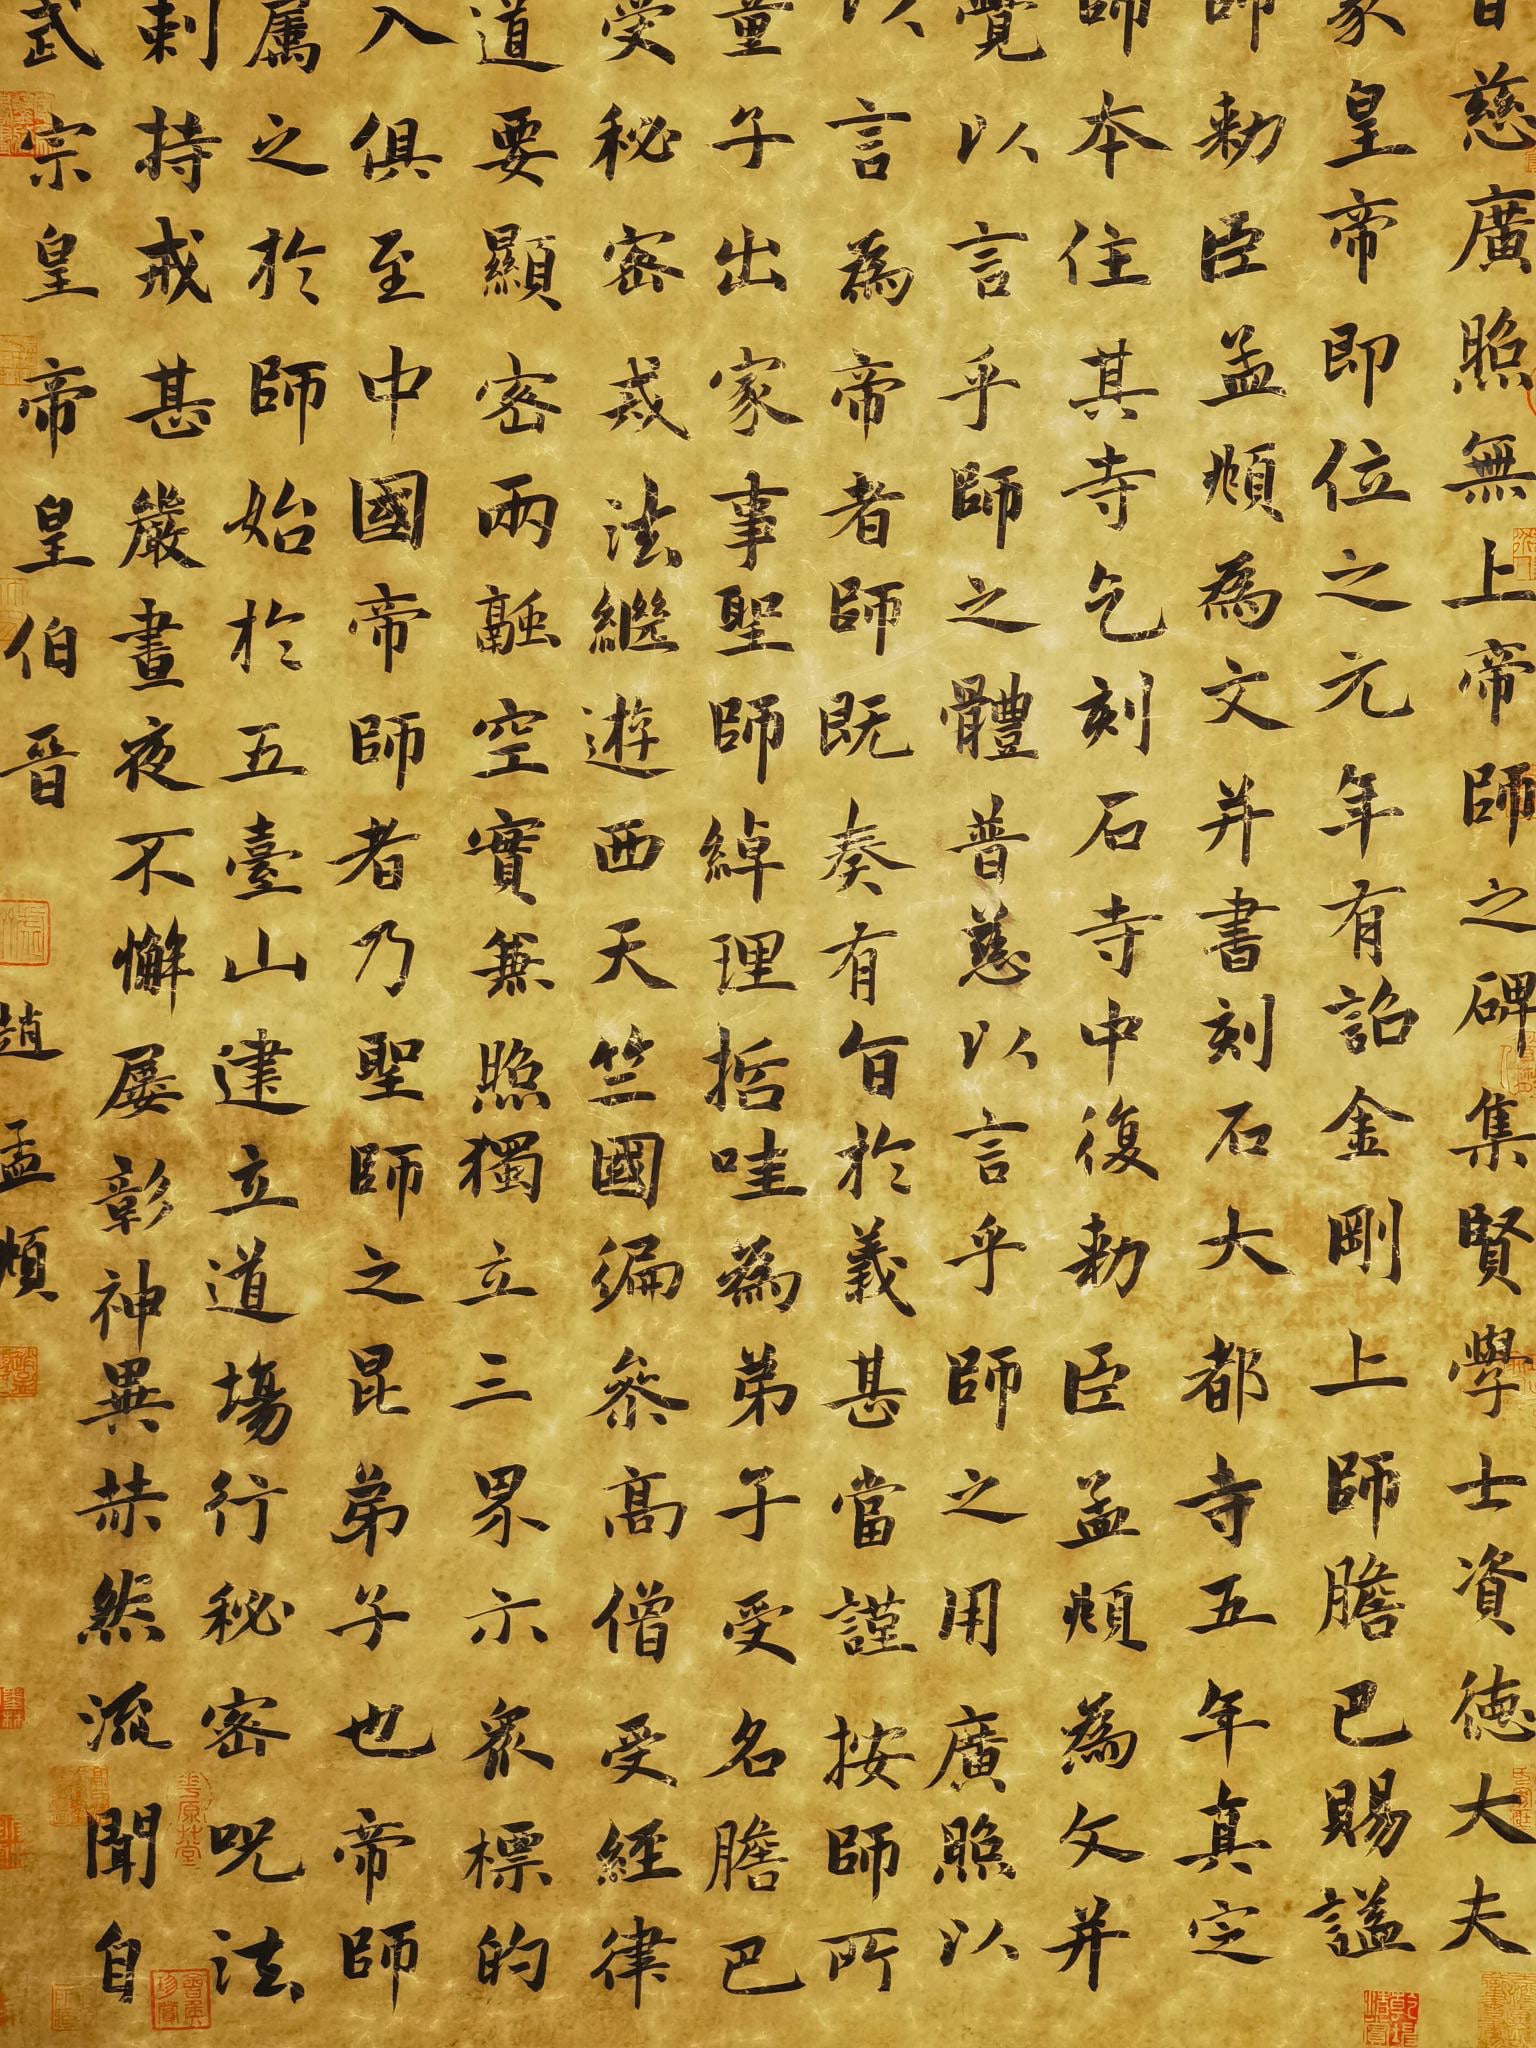 普慈廣照無上帝師之碑集賢學士資德大夫
篆皇帝即位之元年有詔金剛上師膽巴賜諡
師勑臣孟頫為文并書刻石大都寺五年真定
師本住其寺乞刻石寺中復勑臣孟頫為文并
覺以言乎師之體普慈以言乎師之用廣照以
以言為帝者師既奏有旨於義甚當謹按師所
童子出家事聖師綽理哲哇為弟子受名膽巴
受秘密戒法繼遊西天竺國徧參高僧受經律
道要顯密兩融空實兼照獨立三界示眾標的
入俱至中國帝師者乃聖師之昆弟子也帝師
屬之於師始於五臺山建立道場行秘密呪法
剌持戒甚嚴晝夜不懈屢彰神異赫然流聞自
武宗皇帝皇伯晉
趙孟頫